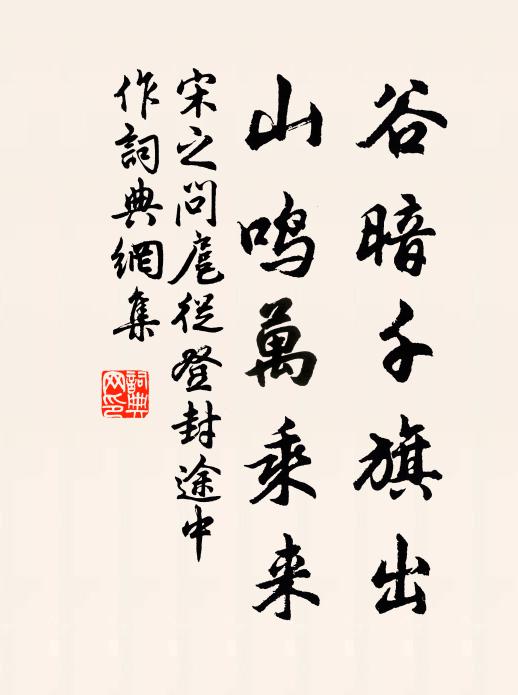 谷暗千旗出
山鸣萬乘来
宋之问扈從登封途中
作詞典網集
詞典
网印